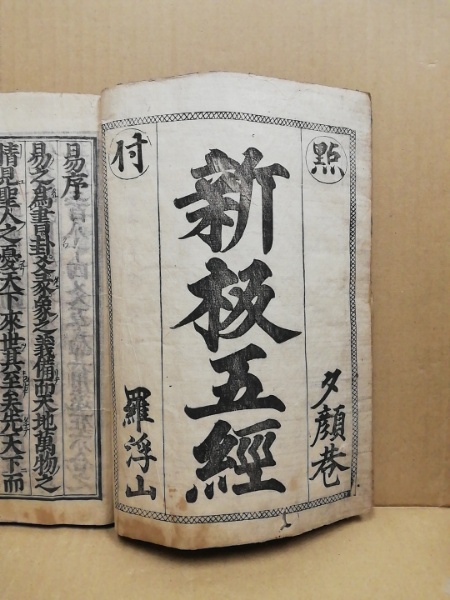 點
夕顔巷
新板五經
付
羅浮山
易序
易之爲書卦爻彖象之義備而天地萬物之
情見聖人之憂天下來世其至矣先天下而